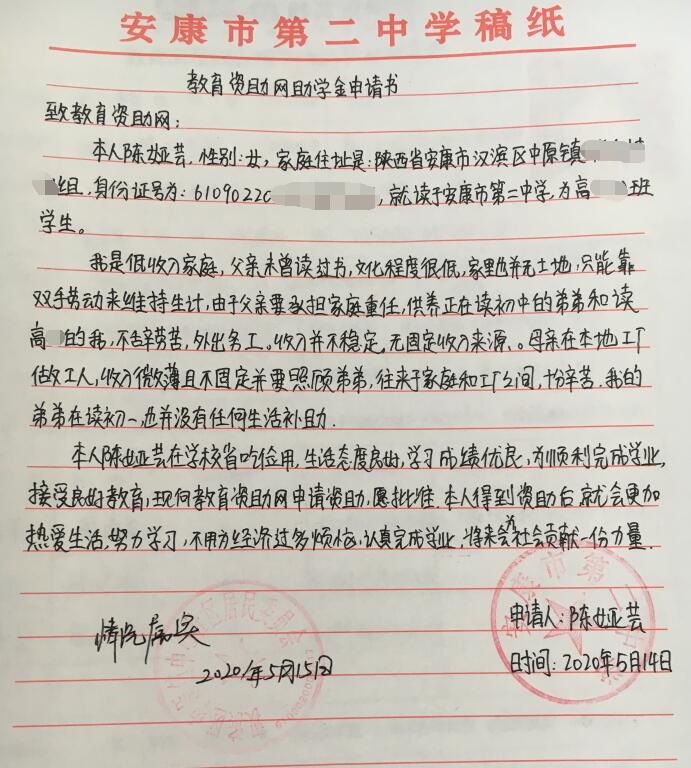 安康市第二中学稿纸
教育资助网助学金申请书
致教育资助网:
本人陈娅芸,性别:女,家庭住址是:陕西省安康市汉滨区中原镇
组,身份证号为:6109022,就读于安康市第二中学,为高班
学生。
我是低收入家庭,父亲未曾读过书,文化程度很低,家里也并无土地,只能靠
双手劳动来维持生计,由于父亲要承担家庭重任,供养正在读初中的弟弟和读
高的我,不辞劳苦,外出务工。收入并不稳定,无固定收入来源。母亲在本地工厂
做工人,收入微薄且不固定并要照顾弟弟,往来于家庭和工厂之间,十分辛苦.我的
弟弟在读初一,也并没有任何生活补助.
本人陈娅芸在学校省吃俭用,生活态度良好,学习成绩优良,为顺利完成学业,
接受良好教育,现向教育资助网申请资助,愿批准.本人得到资助后就会更加
热爱生活,努力学习,不用为经济过多烦恼,认真完成学业,将来会为社会贡献一份力量.
情况属实
2020年5月15日
申请人:陈娅芸
时间:2020年5月14日
安康市第二中学
居民委员会